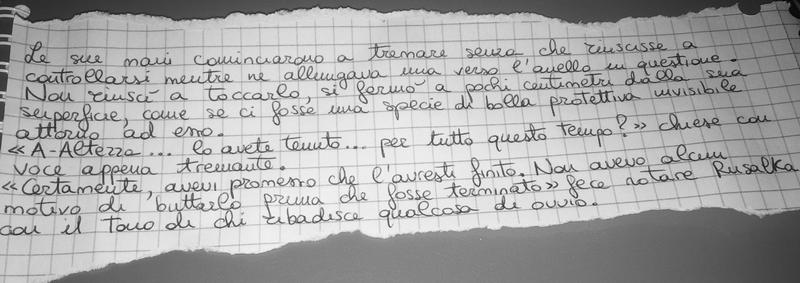 Le sue mani cominciarono a tremare senza che riuscisse a
controllarsi mentre ne allungava una verso l'anello in questione.
Non riuscì a toccarlo, si fermò a pochi centimetri dalla sua
superficie, come se ci fosse una specie di bolla protettiva invisibile
attorno ad esso.
«A-Altezza... lo avete tenuto... per tutto questo tempo?» chiese con
voce appena tremante.
«Certamente, avevi promesso che l'avresti finito. Non avevo alcun
motivo di buttarlo prima che fosse terminato» fece notare Rusalka
con il tono di chi ribadisce qualcosa di ovvio.